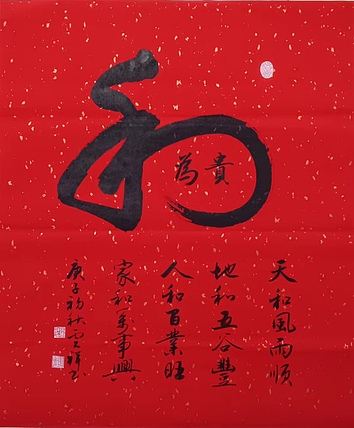 和
為貴
天和風雨順
地和五谷豐
人和百業旺
家和万事興
庚子初秋